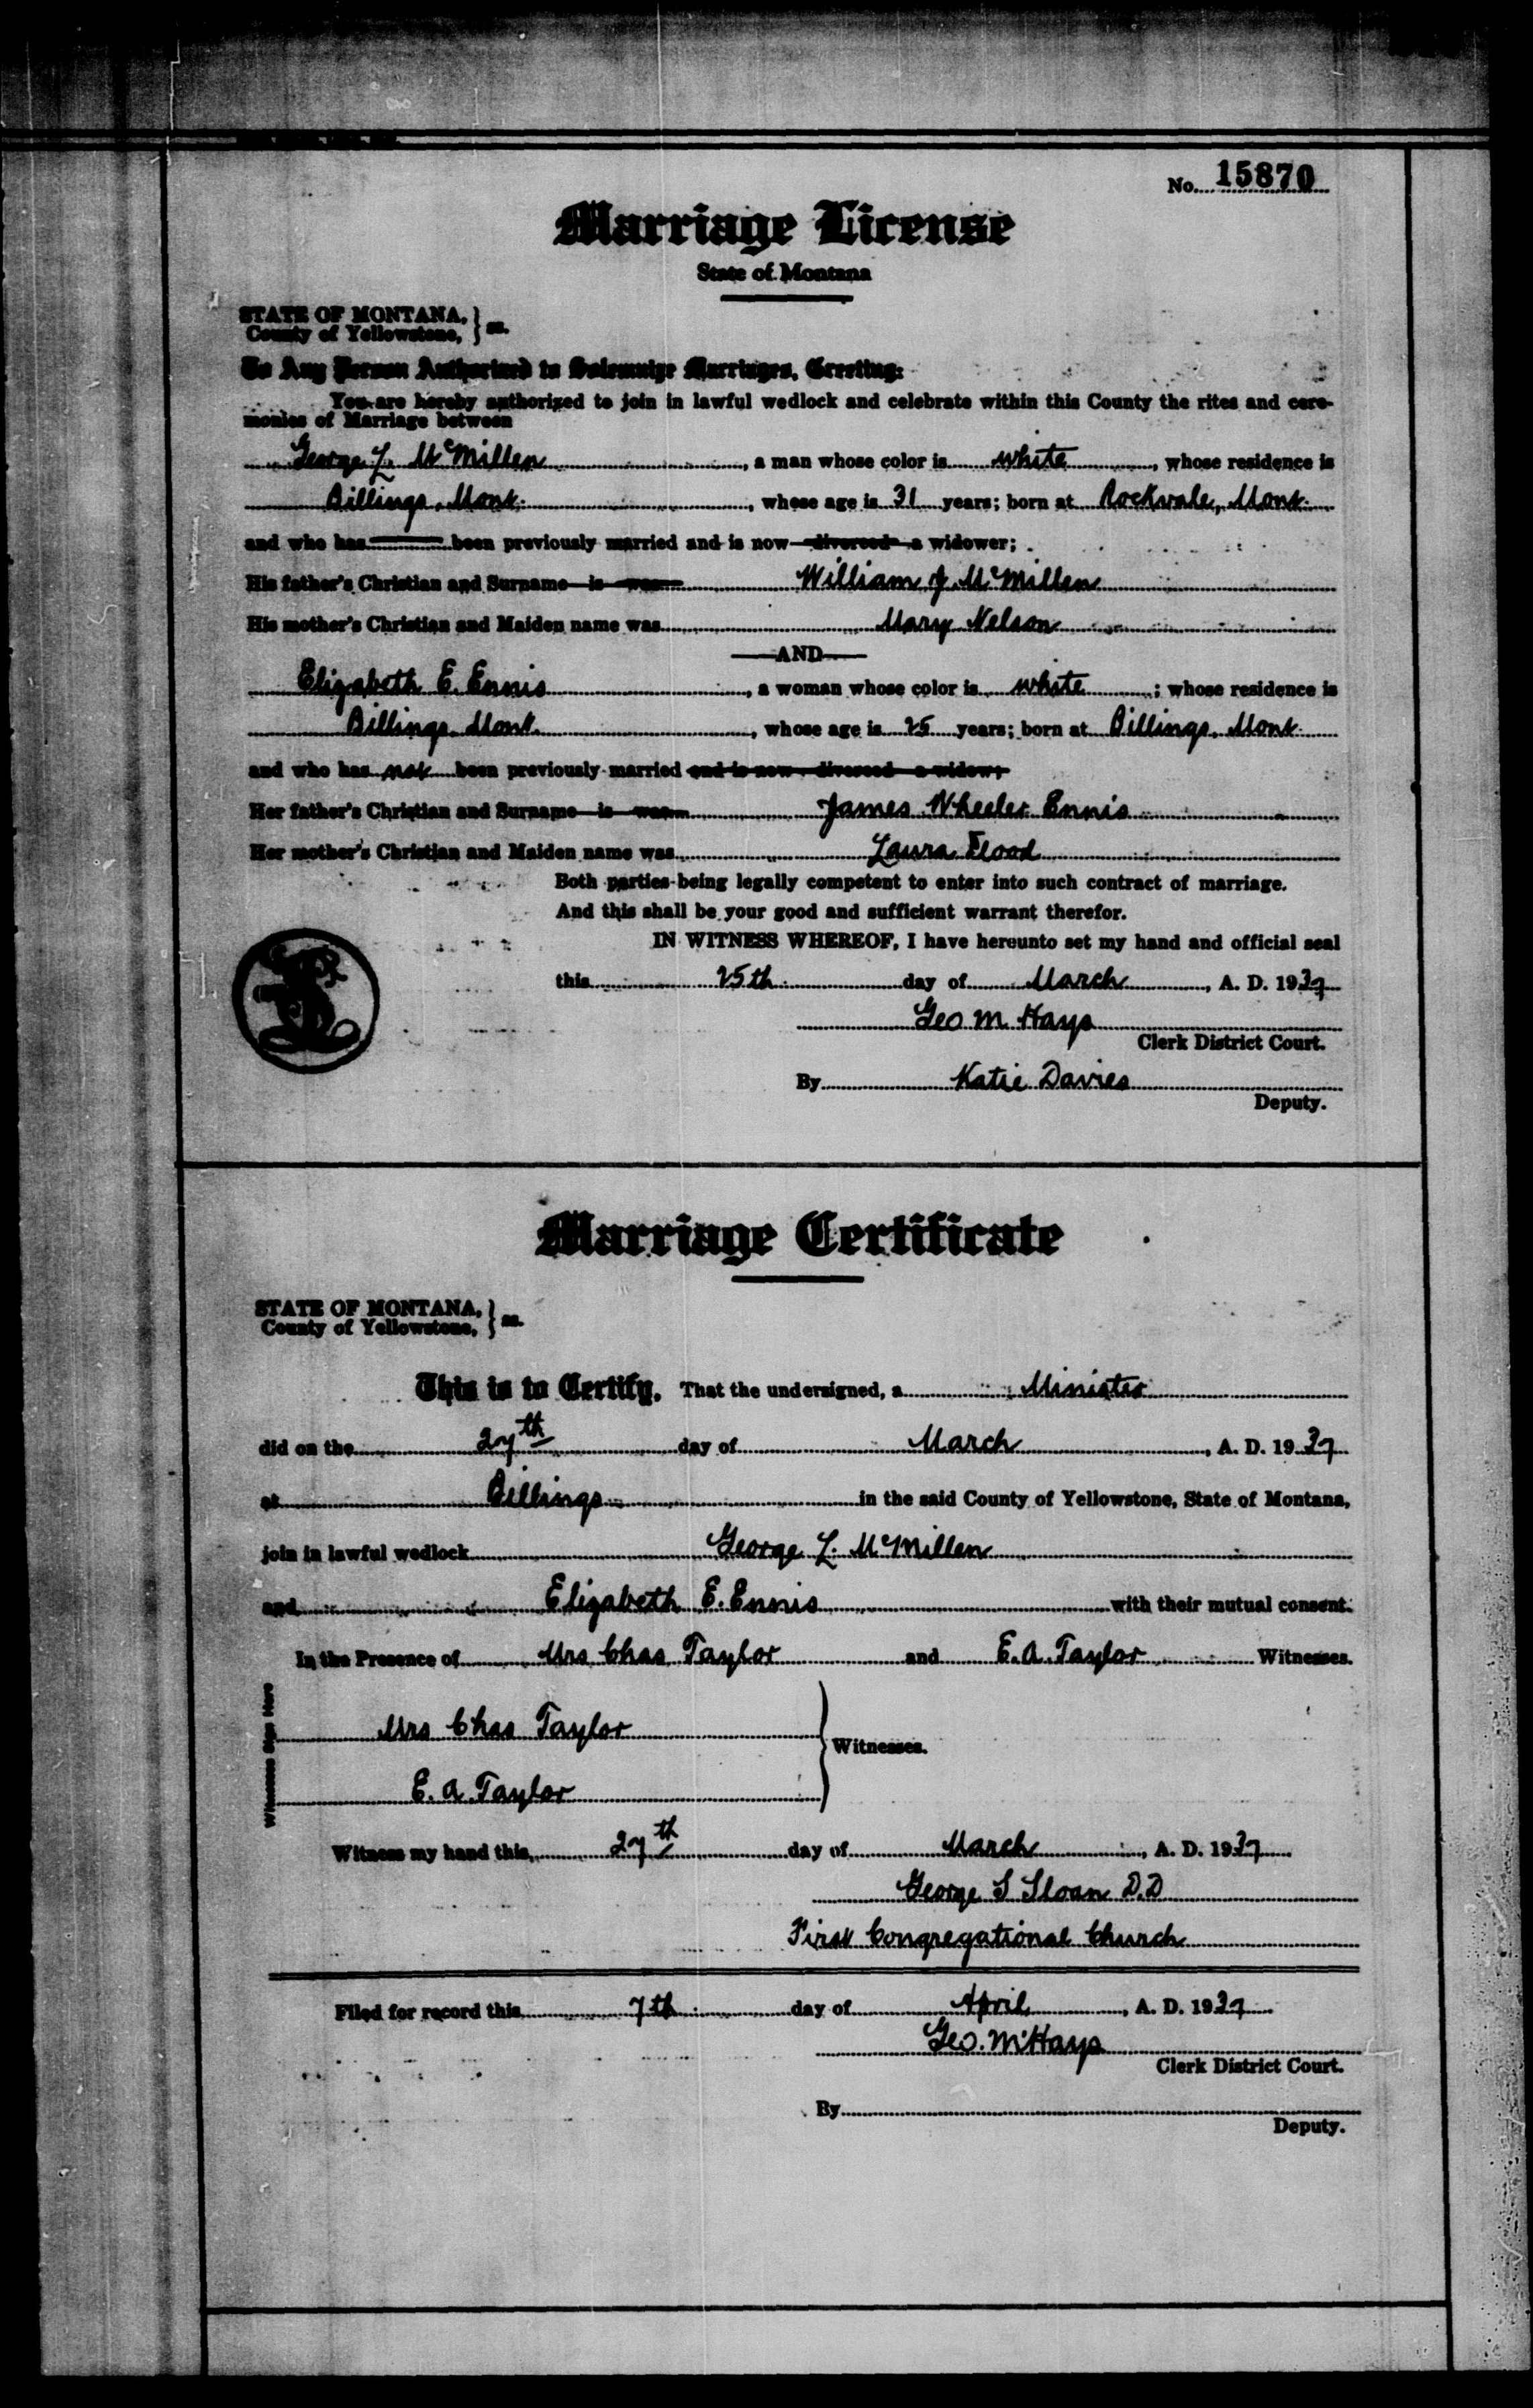 No. 15870
Marriage License
State of Montana
STATE OF MONTANA, } ss.
County of Yellowstone,
To Any Person Authorized to Solemnize Marriages, Greeting:
You are hereby authorized to join in lawful wedlock and celebrate within this County the rites and cere-
monies of Marriage between
George L. McMillen, a man whose color is white, whose residence is
Billings, Mont., whose age is 31 years; born at Rockvale, Mont.
and who has been previously married and is now divorced a widower;
His father's Christian and Surname is was William J. McMillen
His mother's Christian and Maiden name was Mary Nelson
AND
Elizabeth E. Ennis, a woman whose color is white; whose residence is
Billings, Mont., whose age is 25 years; born at Billings, Mont.
and who has not been previously married and is now divorced a widow;
Her father's Christian and Surname is was James Wheeler Ennis
Her mother's Christian and Maiden name was Laura Flood
Both parties being legally competent to enter into such contract of marriage.
And this shall be your good and sufficient warrant therefor.
IN WITNESS WHEREOF, I have hereunto set my hand and official seal
this 25th day of March, A. D. 1937
Geo M. Hays
Clerk District Court.
By Katie Davies
Deputy.
Marriage Certificate
STATE OF MONTANA, } ss.
County of Yellowstone,
This is to Certify, That the undersigned, a Minister
did on the 27th day of March, A. D. 1937
at Billings in the said County of Yellowstone, State of Montana,
join in lawful wedlock George L. McMillen
and Elizabeth E. Ennis with their mutual consent.
In the Presence of Mrs Chas Taylor and E. A. Taylor Witnesses.
Witnesses Sign Here
Mrs Chas Taylor
Witnesses.
E. A. Taylor
Witness my hand this 27th day of March, A. D. 1937
George S Sloan D.D
First Congregational Church
Filed for record this 7th day of April, A. D. 1937
Geo. M. Hays
Clerk District Court.
By
Deputy.